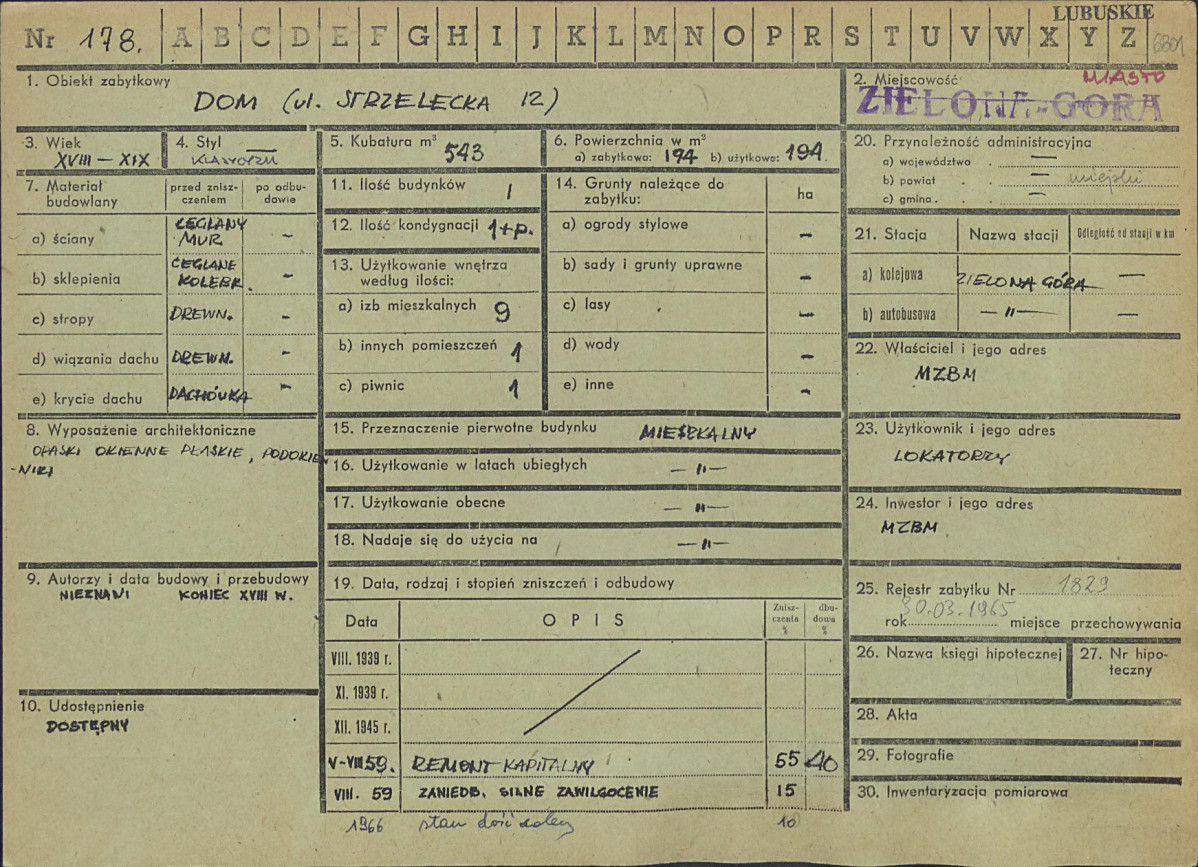 LUBUSKIE
Nr 178. A B C D E F G H I J K L M N O P R S T U V W X Y Z
1. Obiekt zabytkowy
DOM (ul. STRZELECKA 12)
2. Miejscowość MIASTO
ZIELONA-GÓRA
3. Wiek
XVIII — XIX
4. Styl —
KLASYCYZM
5. Kubatura m³ 543
6. Powierzchnia w m²
a) zabytkowa: 194 b) użytkowa: 194.
7. Materiał budowlany
przed zniszczeniem
po odbudowie
a) ściany CEGLANY MUR. –
b) sklepienia CEGLANE KOLEBK. –
c) stropy DREWN. –
d) wiązania dachu DREWN. –
e) krycie dachu DACHÓWKA –
8. Wyposażenie architektoniczne
OPASKI OKIENNE PŁASKIE, PODOKIEN
-NIKI
9. Autorzy i data budowy i przebudowy
NIEZNANI KONIEC XVIII W.
10. Udostępnienie
DOSTĘPNY
11. Ilość budynków 1
12. Ilość kondygnacji 1+p.
13. Użytkowanie wnętrza
według ilości:
a) izb mieszkalnych 9
b) innych pomieszczeń 1
c) piwnic 1
14. Grunty należące do
zabytku:
ha
a) ogrody stylowe –
b) sady i grunty uprawne –
c) lasy –
d) wody –
e) inne –
15. Przeznaczenie pierwotne budynku MIESZKALNY
16. Użytkowanie w latach ubiegłych —"—
17. Użytkowanie obecne —"—
18. Nadaje się do użycia na —"—
19. Data, rodzaj i stopień zniszczeń i odbudowy
Data OPIS Zniszczenia % dbudowa %
VIII. 1939 r.
XI. 1939 r.
XII. 1945 r.
V-VIII 59. REMONT KAPITALNY 55 40
VIII. 59 ZANIEDB. SILNE ZAWILGOCENIE 15
1966 stan dość dobry 10
20. Przynależność administracyjna
a) województwo . —
b) powiat . . — miejski
c) gmina . . —
21. Stacja Nazwa stacji Odległość od stacji w km
a) kolejowa ZIELONA GÓRA —
b) autobusowa —"— —
22. Właściciel i jego adres
MZBM
23. Użytkownik i jego adres
LOKATORZY
24. Inwestor i jego adres
MZBM
25. Rejestr zabytku Nr 1829
30.03.1965
rok miejsce przechowywania
26. Nazwa księgi hipotecznej
27. Nr hipo-
teczny
28. Akta
29. Fotografie
30. Inwentaryzacja pomiarowa